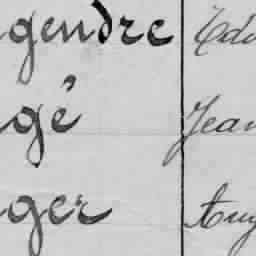 gendre Edu
gé Jean
ger Aug